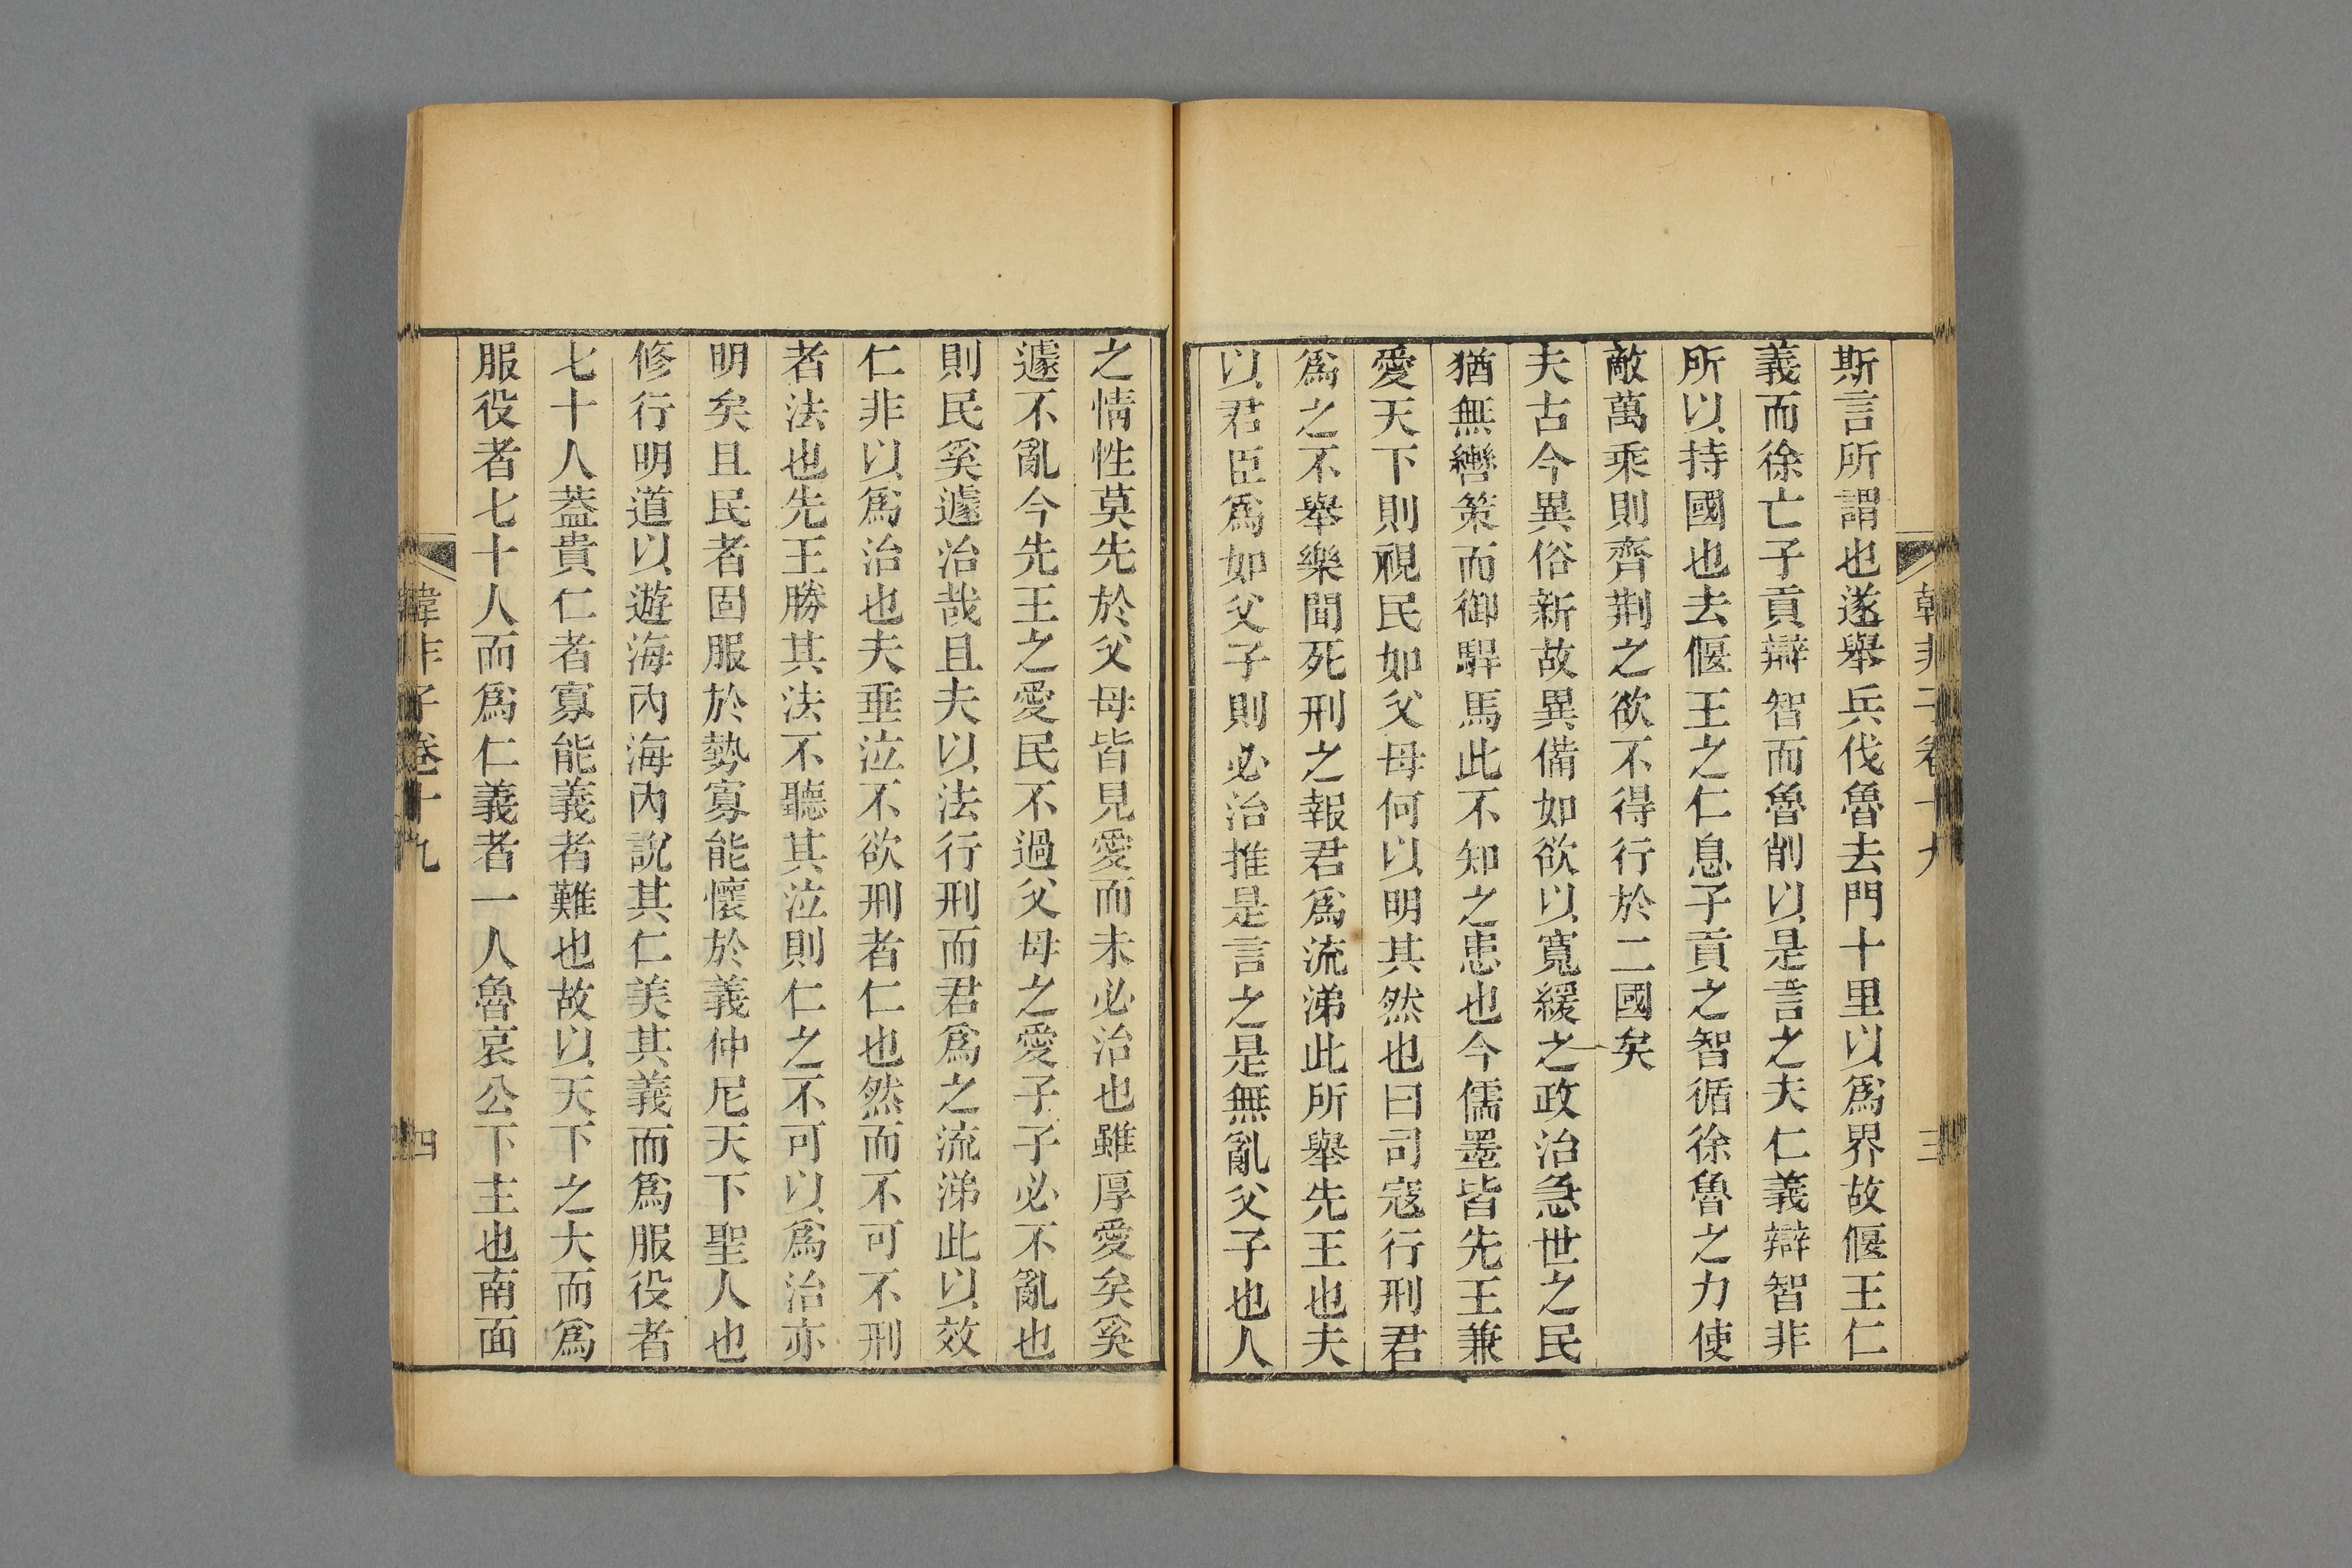 韓非子卷十九
三
斯言所謂也遂舉兵伐魯去門十里以爲界故偃王仁
義而徐亡子貢辯智而魯削以是言之夫仁義辯智非
所以持國也去偃王之仁息子貢之智循徐魯之力使
敵萬乘則齊荆之欲不得行於二國矣
夫古今異俗新故異備如欲以寬緩之政治急世之民
猶無轡策而御駻馬此不知之患也今儒墨皆先王兼
愛天下則視民如父母何以明其然也曰司寇行刑君
爲之不舉樂聞死刑之報君爲流涕此所舉先王也夫
以君臣爲如父子則必治推是言之是無亂父子也人
之情性莫先於父母皆見愛而未必治也雖厚愛矣奚
遽不亂今先王之愛民不過父母之愛子子必不亂也
則民奚遽治哉且夫以法行刑而君爲之流涕此以效
仁非以爲治也夫垂泣不欲刑者仁也然而不可不刑
者法也先王勝其法不聽其泣則仁之不可以爲治亦
明矣且民者固服於勢寡能懷於義仲尼天下聖人也
修行明道以遊海內海內說其仁美其義而爲服役者
七十人蓋貴仁者寡能義者難也故以天下之大而爲
服役者七十人而爲仁義者一人魯哀公下主也南面
韓非子卷十九
四